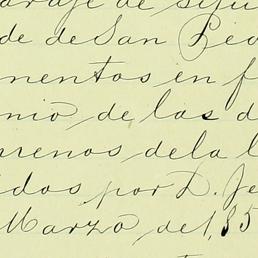 araje de sifu
de de San Ped
mentos en f
nio de las d
rrenos dela l
idos por D. Je
Marzo de 1,85